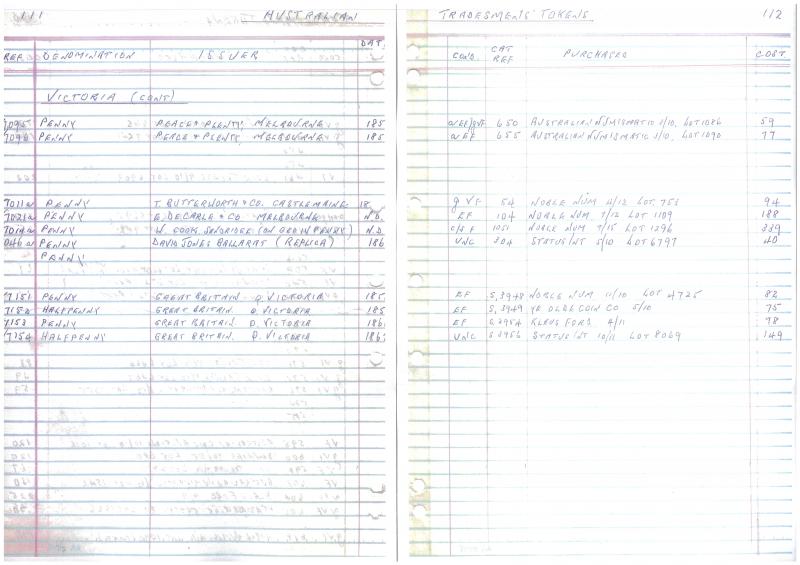 111 AUSTRALIAN
REF. DENOMINATION ISSUER DAT.
VICTORIA (CONT)
PENNY PEACE & PLENTY MELBOURNE 185
PENNY PEACE & PLENTY MELBOURNE 185
7011a PENNY T. BUTTERWORTH & CO. CASTLEMAINE 18
7021a PENNY E. DE CARLE & CO MELBOURNE N.D.
PENNY W. COOK (ON GEO III PENNY) N.D.
PENNY DAVID JONES BALLARAT (REPLICA) 186
PENNY
7151 PENNY GREAT BRITAIN Q. VICTORIA 185
7152 HALFPENNY GREAT BRITAIN Q. VICTORIA 185
7153 PENNY GREAT BRITAIN Q. VICTORIA 186
7154 HALFPENNY GREAT BRITAIN Q. VICTORIA 186
TRADESMENS' TOKENS 112
COND. CAT REF PURCHASED COST
650 AUSTRALIAN NUMISMATIC 3/10, LOT 1086 59
aEF 655 AUSTRALIAN NUMISMATIC 3/10, LOT 1090 77
gVF 54 NOBLE NUM 4/12 LOT 753 94
EF 104 NOBLE NUM 7/12 LOT 1109 188
C/S F 1051 NOBLE NUM 7/15 LOT 1296 339
UNC 304 STATUS INT 5/10 LOT 6797 40
EF S.3948 NOBLE NUM 11/10 LOT 4725 82
EF S.3949 YE OLDE COIN CO 5/10 75
EF S.3954 KLAUS FORD 4/11 78
UNC S.3956 STATUS INT 10/11 LOT 8069 149